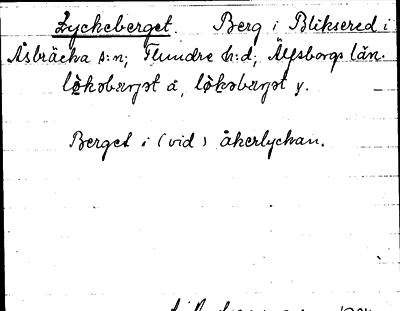 Lyckeberget. Berg i Bliksered i
Åsbräcka s:n, Flundre h:d, Älfsborgs län.
lø̀kəbærjət å, lø̀kəbærjət y.
Berget i (vid) åkerlyckan.